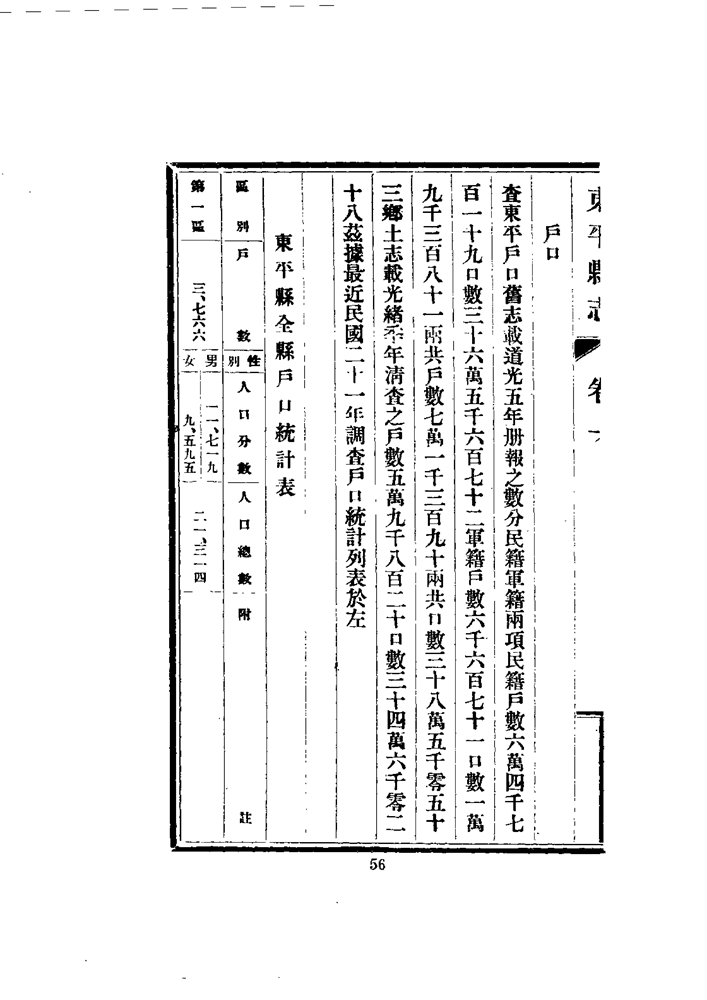 東平縣志 卷
戶口
查東平戶口舊志載道光五年册報之數分民籍軍籍兩項民籍戶數六萬四千七
百一十九口數三十六萬五千六百七十二軍籍戶數六千六百七十一口數一萬
九千三百八十一兩共戶數七萬一千三百九十兩共口數三十八萬五千零五十
三鄉土志載光緒年清查之戶數五萬九千八百二十口數三十四萬六千零二
十八茲據最近民國二十一年調查戶口統計列表於左
東平縣全縣戶口統計表
區別 戶數 性別 人口分數 人口總數 附註
第一區 三、七六六 男 一一、七一九 二一、三一四
女 九、五九五
56